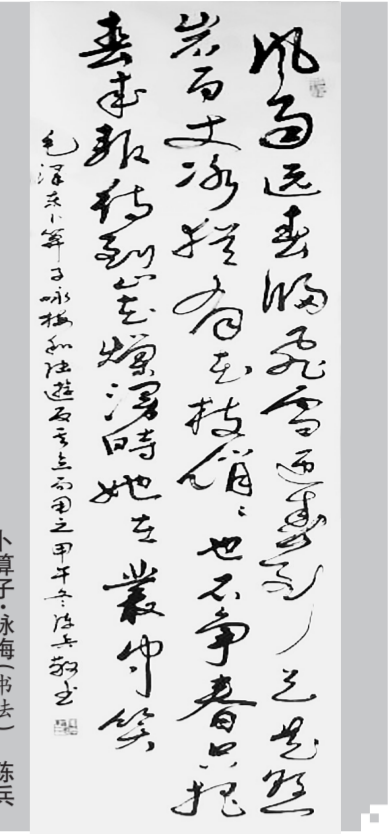 风雨送春歸飛雪迎春到已是悬
崖百丈冰猶有花枝俏〻也不争春只把
春来报待到山花爛漫時她在叢中笑
毛泽东卜算子咏梅和陆遊反其意而用之甲午冬陈兵敬书
卜算子·咏梅(书法) 陈兵